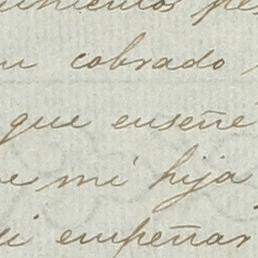 cobrado
que enseñe
mi hija
empeñar